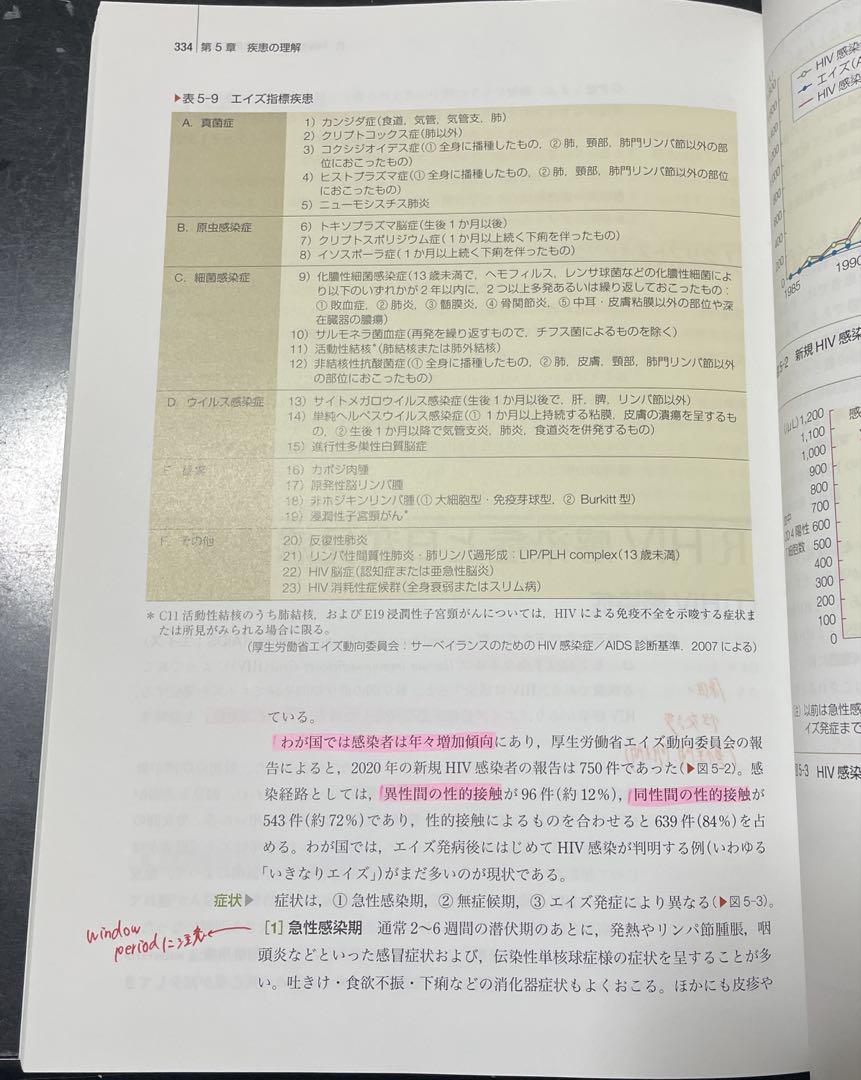 334 第5章 疾患の理解
▶表5-9 エイズ指標疾患
A. 真菌症
1) カンジダ症(食道，気管，気管支，肺)
2) クリプトコックス症(肺以外)
3) コクシジオイデス症(① 全身に播種したもの，② 肺，頸部，肺門リンパ節以外の部
位におこったもの)
4) ヒストプラズマ症(① 全身に播種したもの，② 肺，頸部，肺門リンパ節以外の部位
におこったもの)
5) ニューモシスチス肺炎
B. 原虫感染症
6) トキソプラズマ脳症(生後1か月以後)
7) クリプトスポリジウム症(1か月以上続く下痢を伴ったもの)
8) イソスポーラ症(1か月以上続く下痢を伴ったもの)
C. 細菌感染症
9) 化膿性細菌感染症(13歳未満で，ヘモフィルス，レンサ球菌などの化膿性細菌によ
り以下のいずれかが2年以内に，2つ以上多発あるいは繰り返しておこったもの：
① 敗血症，② 肺炎，③ 髄膜炎，④ 骨関節炎，⑤ 中耳・皮膚粘膜以外の部位や深
在臓器の膿瘍)
10) サルモネラ菌血症(再発を繰り返すもので，チフス菌によるものを除く)
11) 活動性結核*(肺結核または肺外結核)
12) 非結核性抗酸菌症(① 全身に播種したもの，② 肺，皮膚，頸部，肺門リンパ節以外
の部位におこったもの)
D. ウイルス感染症
13) サイトメガロウイルス感染症(生後1か月以後で，肝，脾，リンパ節以外)
14) 単純ヘルペスウイルス感染症(① 1か月以上持続する粘膜，皮膚の潰瘍を呈するも
の，② 生後1か月以降で気管支炎，肺炎，食道炎を併発するもの)
15) 進行性多巣性白質脳症
E. 腫瘍
16) カポジ肉腫
17) 原発性脳リンパ腫
18) 非ホジキンリンパ腫(① 大細胞型・免疫芽球型，② Burkitt型)
19) 浸潤性子宮頸がん*
F. その他
20) 反復性肺炎
21) リンパ性間質性肺炎・肺リンパ過形成：LIP/PLH complex(13歳未満)
22) HIV脳症(認知症または亜急性脳炎)
23) HIV消耗性症候群(全身衰弱またはスリム病)
* C11活動性結核のうち肺結核，およびE19浸潤性子宮頸がんについては，HIVによる免疫不全を示唆する症状ま
たは所見がみられる場合に限る。
(厚生労働省エイズ動向委員会：サーベイランスのためのHIV感染症／AIDS診断基準．2007による)
ている。
わが国では感染者は年々増加傾向にあり，厚生労働省エイズ動向委員会の報
告によると，2020年の新規HIV感染者の報告は750件であった(▶図5-2)。感
染経路としては，異性間の性的接触が96件(約12％)，同性間の性的接触が
543件(約72％)であり，性的接触によるものを合わせると639件(84％)を占
める。わが国では，エイズ発病後にはじめてHIV感染が判明する例(いわゆる
「いきなりエイズ」)がまだ多いのが現状である。
症状▶ 症状は，① 急性感染期，② 無症候期，③ エイズ発症により異なる(▶図5-3)。
window
periodに注意←
[1] 急性感染期 通常2〜6週間の潜伏期のあとに，発熱やリンパ節腫脹，咽
頭炎などといった感冒症状および，伝染性単核球症様の症状を呈することが多
い。吐きけ・食欲不振・下痢などの消化器症状もよくおこる。ほかにも皮疹や
HIV感染
エイズ(A
HIV感染
1985
1990
5-2 新規HIV感染
(/μL)1,200
1,100
1,000
900
800
700
600
500
400
300
200
100
0
感
4陽性
細胞数
以前は急性感
イズ発症まで
5-3 HIV感染